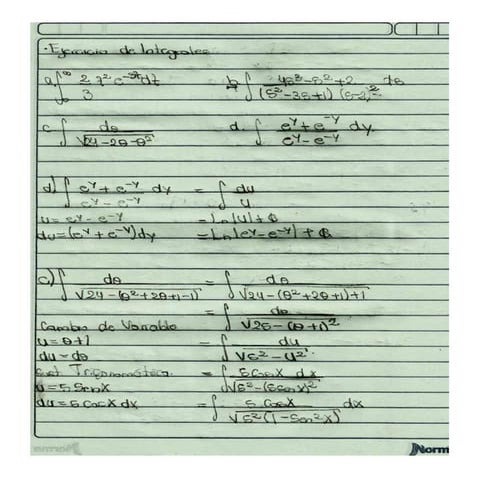 · Ejercicio de Integrales
a. ∫₀^∞ 2/3 t² e^-3t dt    b. ∫ 4s³-s²+2 / (s²-3s+1)(s-2)² ds
c. ∫ dθ / √24-2θ-θ²    d. ∫ e^y+e^-y / e^y-e^-y dy.
d) ∫ e^y+e^-y / e^y-e^-y dy = ∫ du / u
u = e^y-e^-y = Ln|u|+C
du = (e^y+e^-y)dy = Ln|e^y-e^-y|+C
c) ∫ dθ / √24-(θ²+2θ+1-1) = ∫ dθ / √24-(θ²+2θ+1)+1
= ∫ dθ / √25-(θ+1)²
Cambio de Variable
u = θ+1 = ∫ du / √5²-u²
du = dθ
Trigonométrica = ∫ 5Cosx dx / √5²-(5senx)²
u = 5Senx
du = 5Cosx dx = ∫ 5 Cosx / √5²(1-Sen²x) dx
Norm